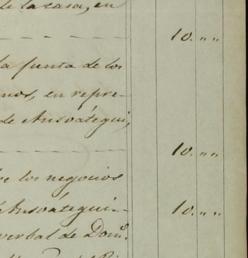 de la casa, en
10. " "
la junta de los
nos, en repre-
de Ansoátegui,
10. " "
los negocios
Ansoátegui 10. " "
verbal de Dom.º